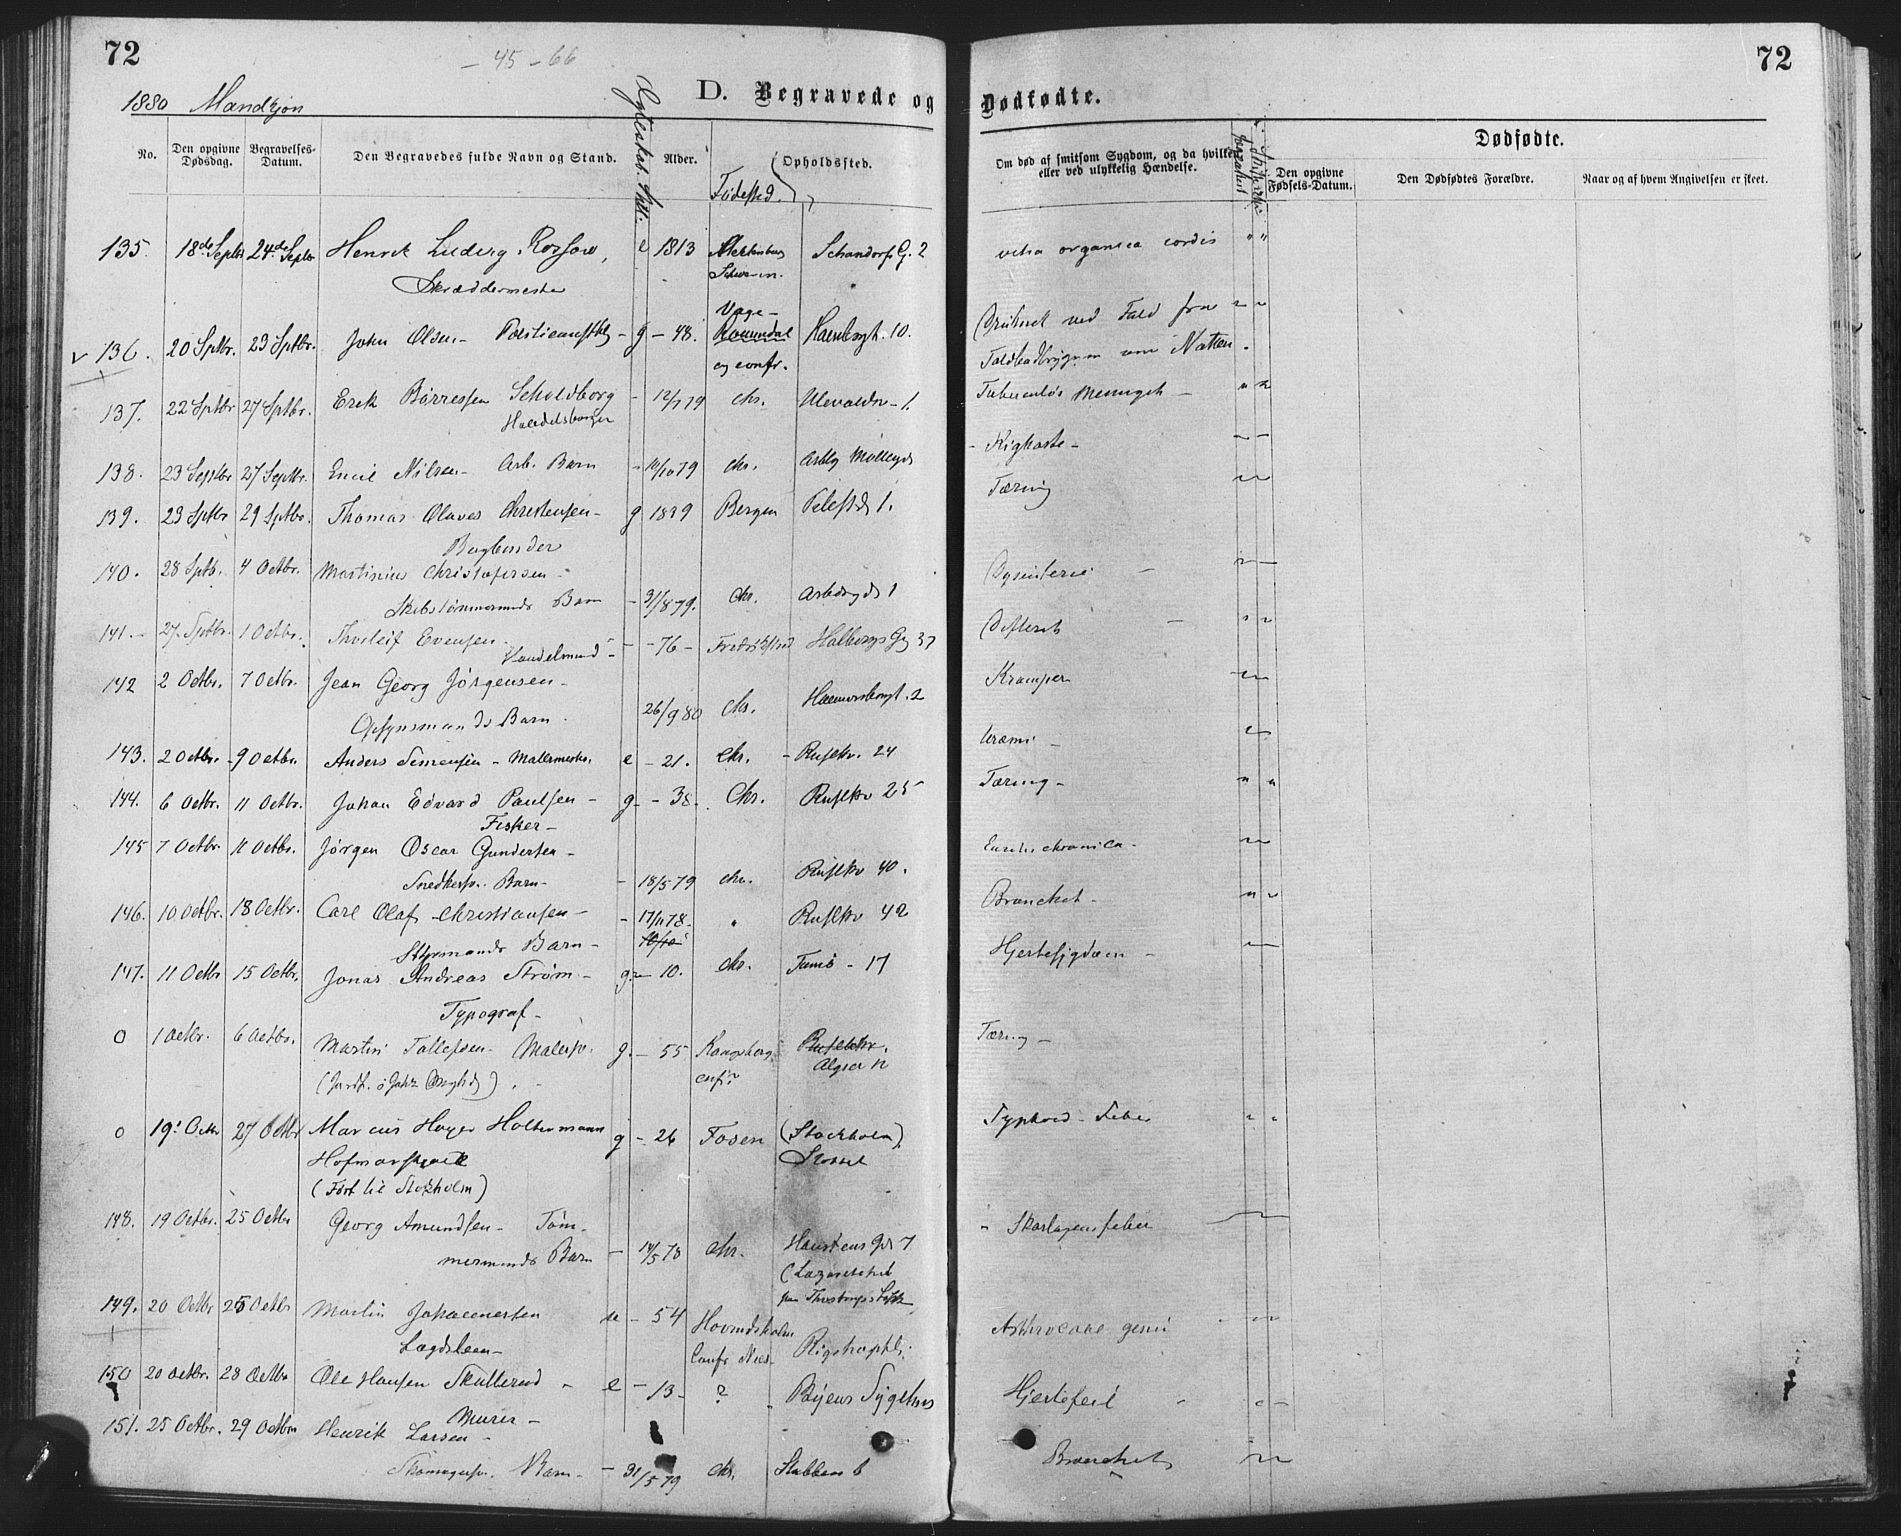 72
- 45 - 66
72
1880 Mandkjøn
D. Begravede og Dødfødte.
No.
Den opgivne Dødsdag.
Begravelses-Datum.
Den Begravedes fulde Navn og Stand.
Ægteskab. Still.
Alder.
Fødested.
Opholdssted.
Om død af smitsom Sygdom, og da hvilken, eller ved ulykkelig Hændelse.
Dødfødte.
Den opgivne Fødsels-Datum.
Den Dødfødtes Forældre.
Naar og af hvem Angivelsen er skeet.
135. 18de Septbr 24de Septbr Henrik Ludvig Rossow, e 1813 Meklenburg Schandorfs G. 2 vitia organica cordis " "
Skræddermester Schwerin.
136. 20 Sptbr. 23 Sptbr. John Olsen g - 48. Vage - Romsdal Hausbrgt. 10. Druknet ved Fald fra
og confr. Toldbodbryggen om Natten.
137. 22 Sptbr 27 Sptbr. Erik Børresen Scholdborg - 12/7 79 Chr. Ulevoldsv - 1. Tuberculøs Meningit -
Handelsborger
138. 23 Septbr 27 Septbr. Emil Nilsen - Arb. Barn - 10/10 79 Chr. Arbbg Møllergd - Kighoste -
139. 23 Sptbr 29 Sptbr. Thomas Olaves Christensen - g 1839 Bergen Pilestd 1. Tæring
Bogbinder
140. 28 Sptb. 4 Octbr. Martinius Christofersen -
Skibstømmermands Barn - 31/8 79. Chr. Arbdsgd 1 Dysenterie -
141. - 27. Sptbr. 1 Octbr. Thorleif Evensen - - 76 - Fredrikstad Holbergs Gd 37 Difterit -
Handelsmand -
142 2 Octbr. 7 Octbr. Jean Georg Jørgensen -
Opsynsmands Barn. 26/9 80 Chr. Hammersborgt. 2 Kramper
143. 2 Octbr. - 9 Octbr. Anders Simensen - Malermester. e - 21. Chr. - Ruselkv. 24 Uræmi -
144. 6 Octbr. 11 Octbr. Johan Edvard Paulsen - g - - 38. Chr. Ruselkv 25 Tæring -
Fisker -
145 7 Octbr. 11 Octbr. Jørgen Oscar Gundersen -
Snedkersv. Barn - - 18/5 79 Chr. Ruselkv 40. chronica -
146. 10 Octbr. 18 Octbr. Carl Olaf Christiansen - - 17/11 78 - " Ruselkv 42 Bronchit -
Styrmands Barn -
147. 11 Octbr 15 Octbr. Jonas Andreas Strøm - g - - 10. Chr. Tomb - 17 Hjertesygdom -
Typograf -
0 1 Octbr. 6 Octbr. Martin Tollefsen. Malersv. g. - 55 Kongsberg Ruselkv. Tæring -
confr Algier 12
0 19. Octbr 27 Octbr Marcus Høyer Holtermann g - 26 Fosen (Stockholm). Typhoid - Feber
Hofmarskalk Slottet
(Ført til Stockholm)
148. 19 Octbr. 25 Octbr Georg Amundsen - Tøm-
mermands Barn - 14/5 78 Chr. Haustens Gd 7 - Skarlagensfeber
(Lazarethet
paa Thorstrups Løkk
149. 20 Octbr 25 Octbr Martin Johannesen - 54 Hovindsholm Rigshosptl. genu
Lægdslem - Confr Næs -
150 20 Octbr. 28 Octbr Ole Hansen Skullerud - e - 13 - ? Byens Sygehus Hjertefeil -
Murer -
151. 25 Octbr. 29 Octbr Henrik Larsen -
Barn - - 31/5 79 Chr. Stubben 6 Bronchit